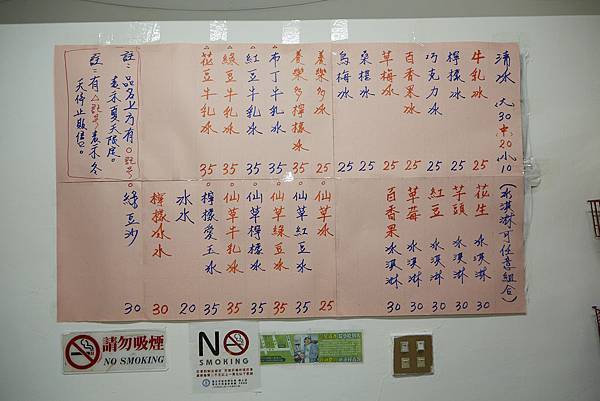 清冰 大30 中20 小10
牛乳冰 25
檸檬冰 25
巧克力冰 25
百香果冰 25
草莓冰 25
桑椹冰 25
烏梅冰 25
養樂多冰 25
養樂多檸檬冰 35
△布丁牛乳冰 35
△紅豆牛乳冰 35
△綠豆牛乳冰 35
△花豆牛乳冰 35
註:品名上方有○記號表示夏天限定。
註:有△記號表示冬天停止販售。
(冰淇淋可任意組合)
花生冰淇淋 30
芋頭冰淇淋 30
紅豆冰淇淋 30
草莓冰淇淋 30
百香果冰淇淋 30
○仙草冰 25
○仙草紅豆冰 35
○仙草綠豆冰 35
○仙草檸檬冰 35
○仙草牛乳冰 35
○檸檬愛玉冰 35
冰水 20
檸檬冰水 30
○綠豆沙 30
請勿吸煙
NO SMOKING
NO
SMOKING